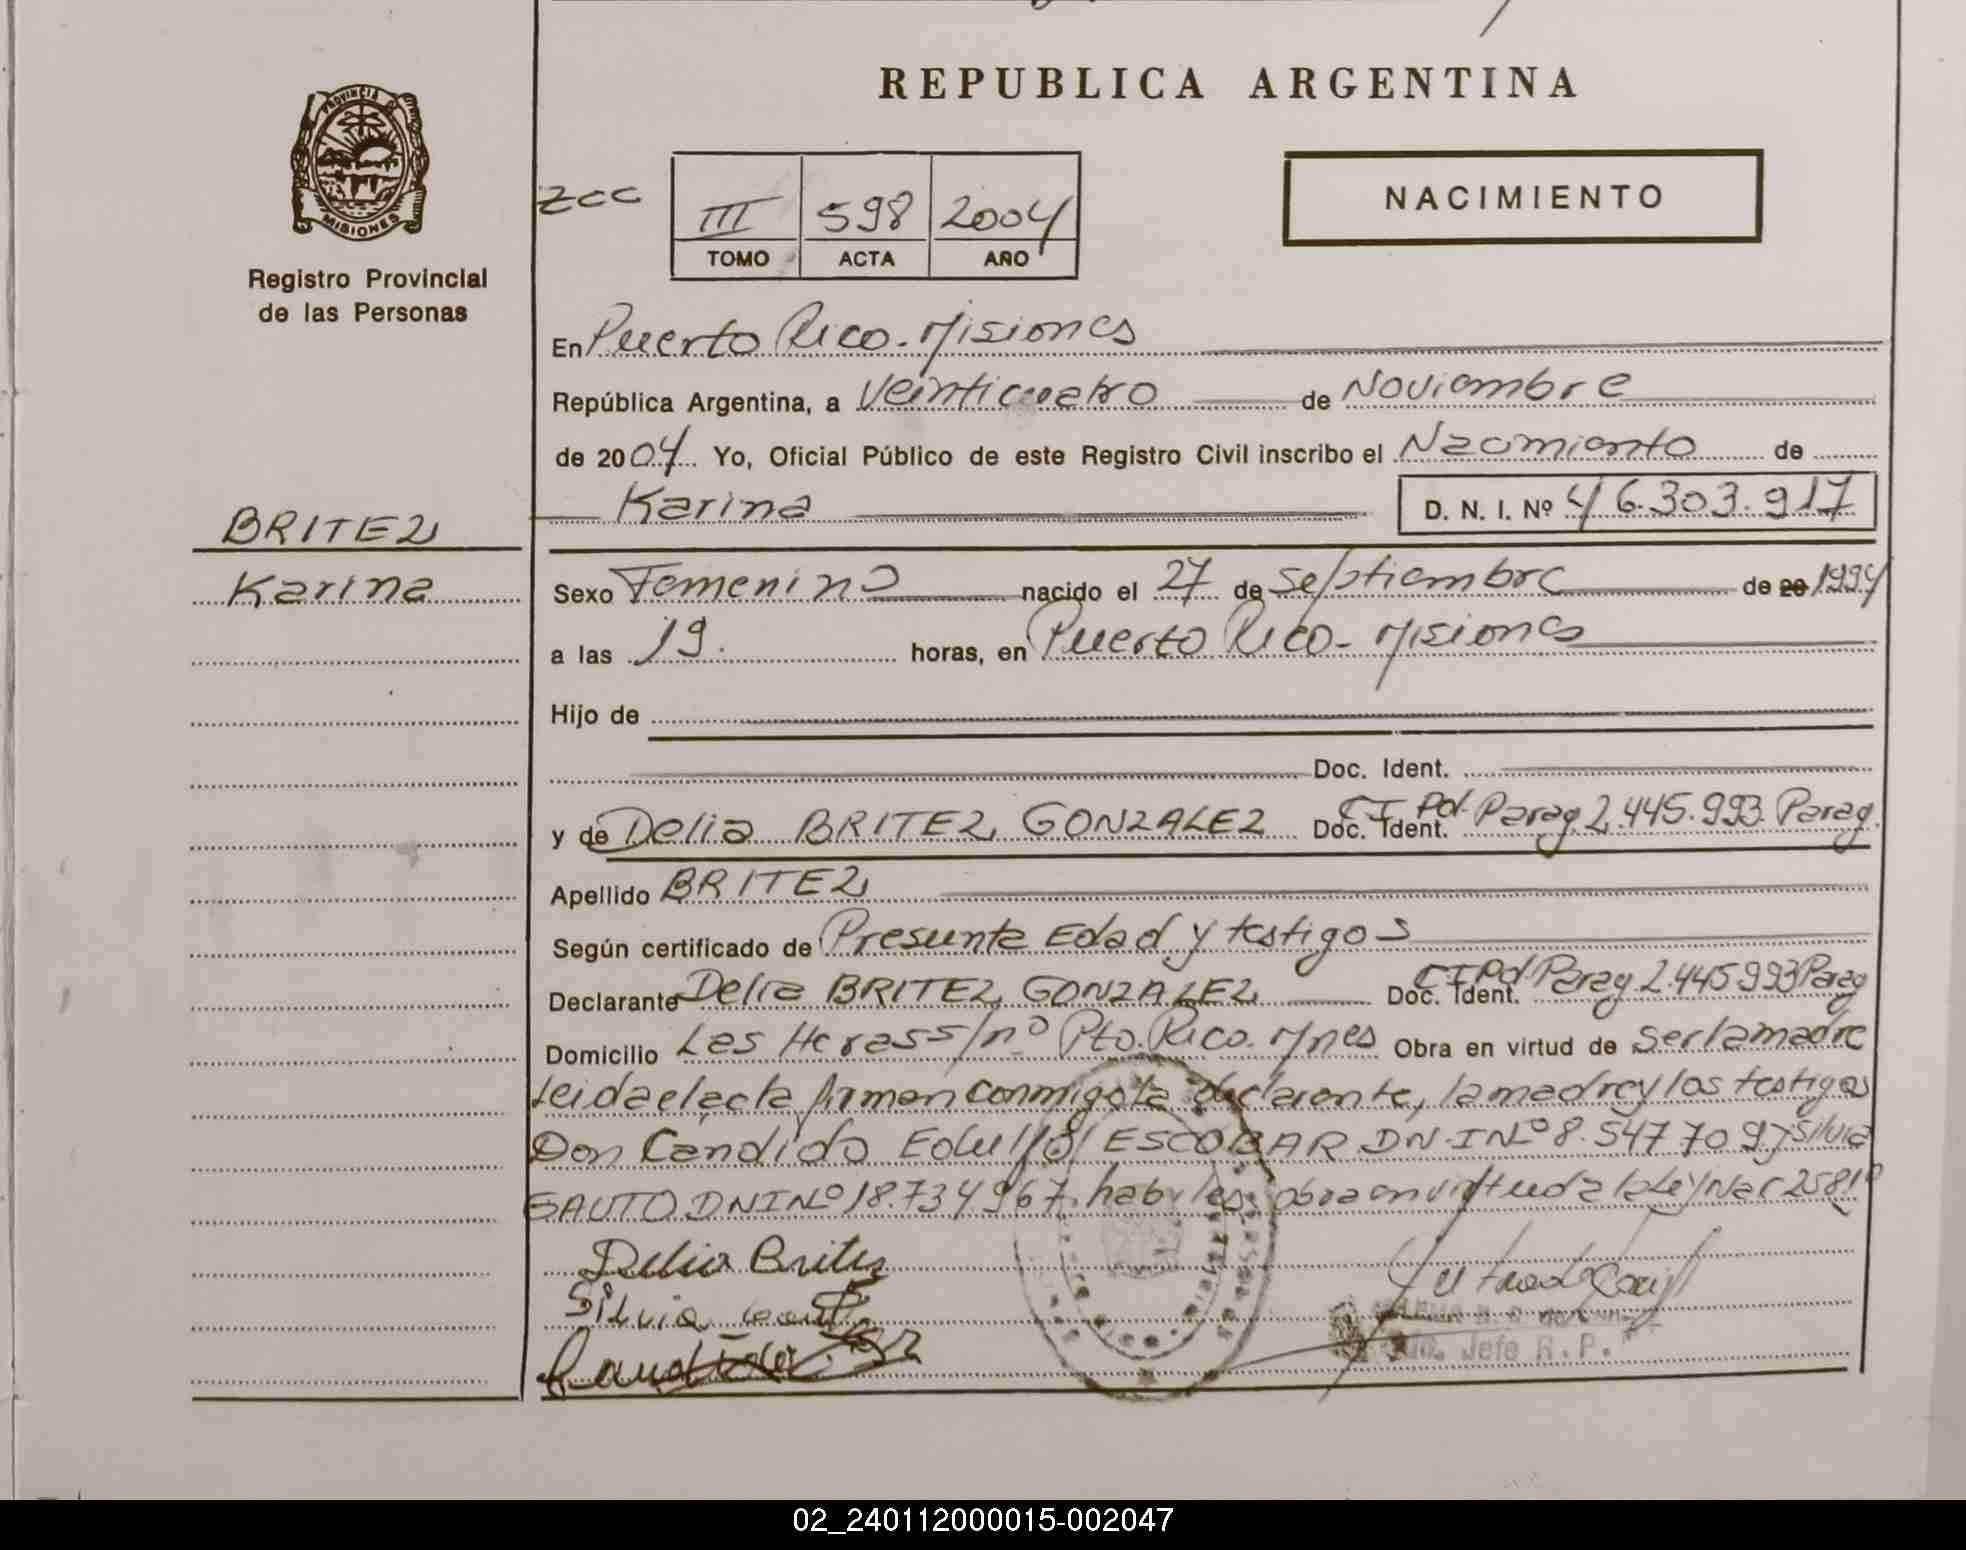 REPUBLICA ARGENTINA
PROVINCIA DE
MISIONES
Registro Provincial
de las Personas
zcc
III 598 2004
TOMO ACTA AÑO
NACIMIENTO
En Puerto Rico. Misiones
República Argentina, a Veinticuatro de Noviembre
de 2004 Yo, Oficial Público de este Registro Civil inscribo el Nacimiento de
Karina D. N. I. Nº 46.303.917
BRITEZ
Karina
Sexo Femenino nacido el 27 de septiembre de 20 1994
a las 19. horas, en Puerto Rico - Misiones
Hijo de
Doc. Ident.
y de Delia BRITEZ GONZALEZ Doc. Ident. CI Pol. Parag 2.445.993 Parag.
Apellido BRITEZ
Según certificado de Presunta Edad y testigos
Declarante Delia BRITEZ GONZALEZ Doc. Ident. CI Pol. Parag 2.445993 Parag
Domicilio Las Heras s/nº Pto. Rico. Mnes Obra en virtud de ser la madre
Leida el acta firman conmigo la declarante, la madre y los testigos
Don Cándido ESCOBAR DNI Nº 8.547709 y Silvia
GAUTO DNI Nº 18.734967. habiles. obra en virtud a la Ley Nac 25819
Delia Britez
Silvia Gauto
Jefe R. P.
02_240112000015-002047